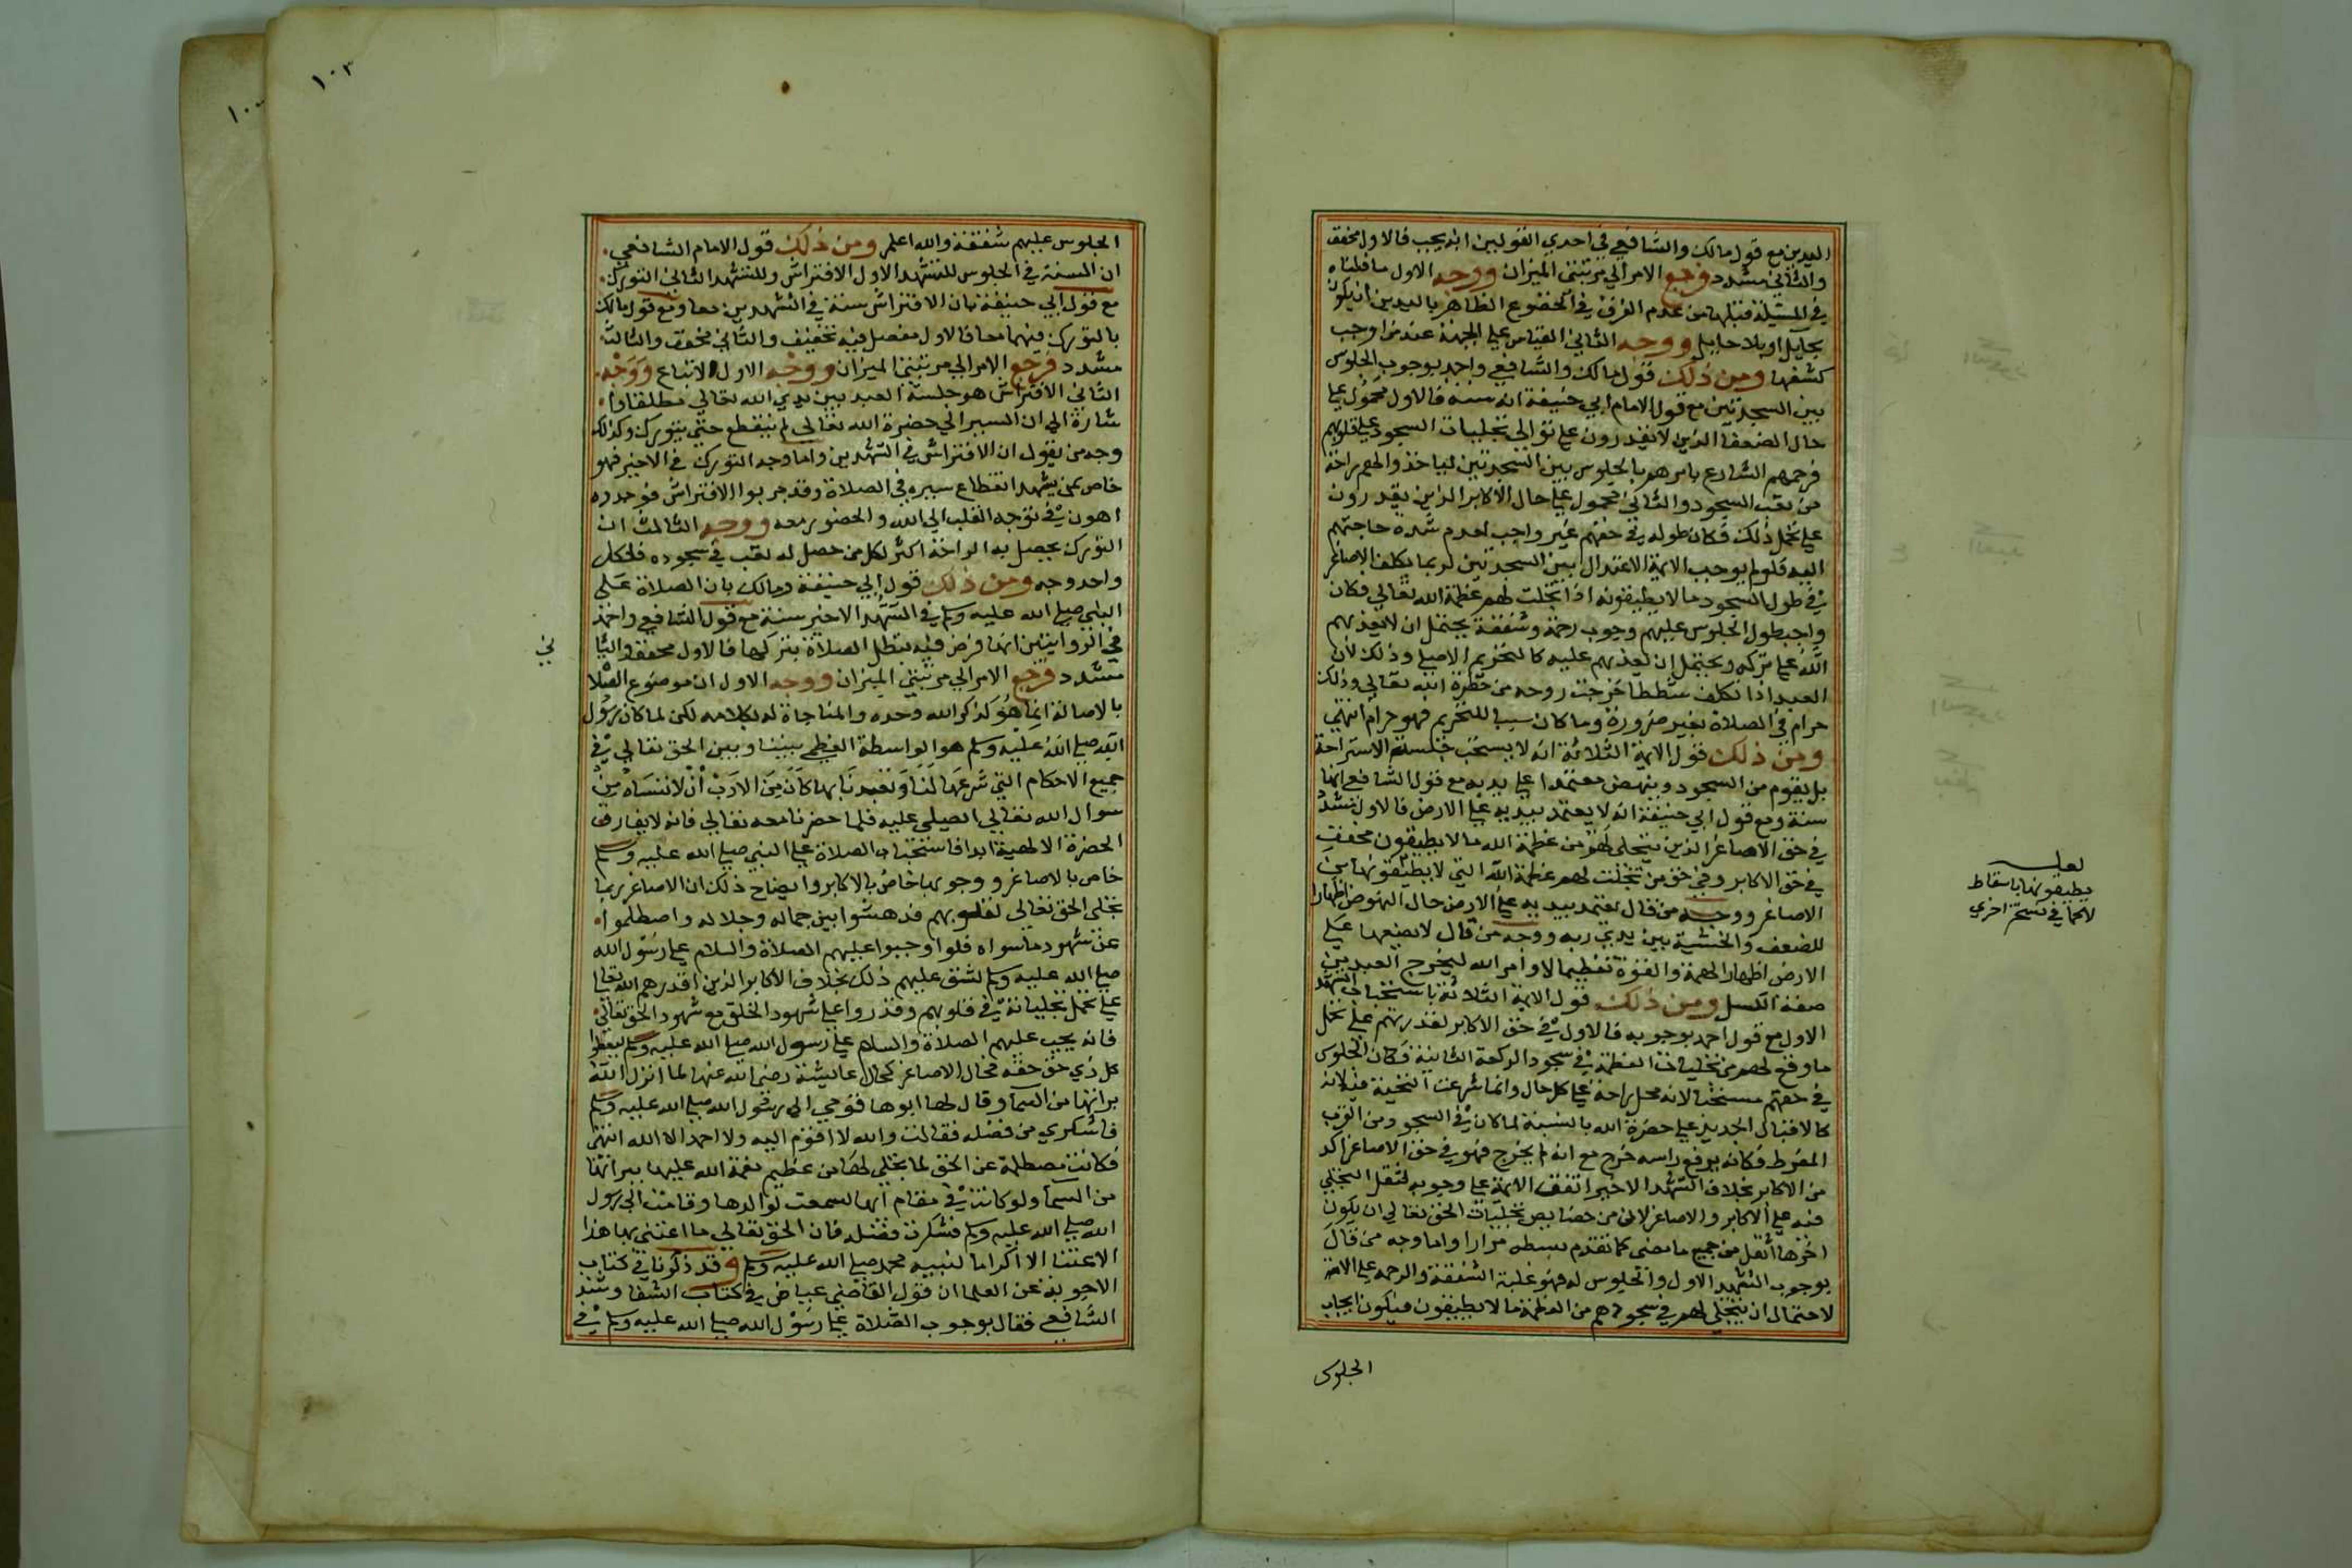 اليدين مع قول مالك والشافعي في احدي القولين انه يجب فالاول مخفف
والثاني مشدد فرجع الامر الي مرتبتي الميزان ووجه الاول ما قلناه
في المسئلة قبلها من عدم الفرق في الخضوع الظاهر باليدين ان يكون
بحايل او بلا حايل ووجه الثاني القياس علي الجبهة عند من اوجب
كشفها ومن ذلك قول مالك والشافعي واحمد بوجوب الجلوس
بين السجدتين مع قول الامام ابي حنيفة انه سنة فالاول محمول علي
حال الضعفا الذين لا يقدرون علي توالي تجليات السجود علي قلوبهم
فرحمهم الشارع بامرهم بالجلوس بين السجدتين لياخذوا لهم راحة
من تعب السجود والثاني محمول علي حال الاكابر الذين يقدرون
علي تحمل ذلك فكان طوله في حقهم غير واجب لعدم شدة حاجتهم
اليه فلو لم يوجب الايمة الاعتدال بين السجدتين لربما تكلف الاصاغر
في طول السجود ما لا يطيقونه اذا تجلت لهم عظمة الله تعالي فكان
واجب طول الجلوس عليهم وجوب رحمة وشفقة يحتمل ان لا يعذبهم
الله علي تركه ويحتمل ان يعذبهم عليه كالتحريم الاصلي وذلك لان
العبد اذا تكلف شططا خرجت روحه من حضرة الله تعالي وذلك
حرام في الصلاة بغير ضرورة وما كان سببا للتحريم فهو حرام انتهي
ومن ذلك قول الايمة الثلاثة انه لا يستحب جلسة الاستراحة
بل يقوم من السجود وينهض معتمدا علي يديه مع قول الشافعي انها
سنة ومع قول ابي حنيفة انه لا يعتمد بيديه علي الارض فالاول مشدد
في حق الاصاغر الذين يتجلي لهم من عظمة الله ما لا يطيقون مخفف
في حق الاكابر وفي حق من تجلت لهم عظمة الله التي لا يطيقونها من
الاصاغر ووجه من قال يعتمد بيديه علي الارض حال النهوض اظهارا
للضعف والخشية بين يدي ربه ووجه من قال لا يضعها علي
الارض اظهار الهمة والقوة تعظيما لاوامر الله ليخرج العبد من
صفة الكسل ومن ذلك قول الايمة الثلاثة باستحباب التشهد
الاول مع قول احمد بوجوبه فالاول في حق الاكابر لقدرتهم علي تحمل
ما وقع لهم من تجليات العظمة في سجود الركعة الثانية فكان الجلوس
في حقهم مستحبا لانه محل راحة علي كل حال وانما شرعت التحية فيه لانه
كالاقبال الجديد علي حضرة الله بالنسبة لما كان في السجود من القرب
المفرط فكانه برفع راسه خرج مع انه لم يخرج فهو في حق الاصاغر اكد
من الاكابر بخلاف التشهد الاخير اتفق الايمة علي وجوبه لثقل التجلي
فيه علي الاكابر والاصاغر لان من خصايص تجليات الحق تعالي ان يكون
اخرها اثقل من جميع ما مضي كما تقدم بسطه مرارا واما وجه من قال
بوجوب التشهد الاول والجلوس له فهو غلبة الشفقة والرحمة علي الامة
لاحتمال ان يتجلي لهم في سجودهم من العظمة ما لا يطيقون فيكون ايجاب
الجلوس
لعله
يطيقونها باسقاط
لا كما في نسخة اخري
١٠٣
الجلوس عليهم شفقة والله اعلم ومن ذلك قول الامام الشافعي
ان السنة في الجلوس للتشهد الاول الافتراش وللتشهد الثاني التورك
مع قول ابي حنيفة بان الافتراش سنة في التشهدين معا ومع قول مالك
بالتورك فيهما معا فالاول مفصل فيه تخفيف والثاني مخفف والثالث
مشدد فرجع الامر الي مرتبتي الميزان ووجه الاول الاتباع ووجه
الثاني الافتراش هو جلسة العبد بين يدي الله تعالي مطلقا وا
شارة الي ان السير الي حضرة الله تعالي لم ينقطع حتي يتورك وكذلك
وجه من يقول ان الافتراش في التشهدين واما وجه التورك في الاخير فهو
خاص بمن يشهد انقطاع سيره في الصلاة وقد جربوا الافتراش فوجدوه
اهون في توجه القلب الي الله والحضور معه ووجه الثالث ان
التورك يحصل به الراحة اكثر لكل من حصل له تعب في سجوده فلكل
واحد وجه ومن ذلك قول ابي حنيفة ومالك بان الصلاة علي
النبي صلي الله عليه وسلم في التشهد الاخير سنة مع قول الشافعي واحمد
في الروايتين انها فرض فيه تبطل الصلاة بتركها فالاول مخفف والثا
ني
مشدد فرجع الامر الي مرتبتي الميزان ووجه الاول ان موضوع الصلا
بالاصالة انما هو كذكر الله وحده والمناجاة له بكلامه لكن لما كان رسول
الله صلي الله عليه وسلم هو الواسطة العظمي بيننا وبين الحق تعالي في
جميع الاحكام التي شرعها لنا وتعبدنا بها كان من الادب ان لا ننساه من
سوال الله تعالي الصلي عليه فلما حضرنا معه تعالي فانه لا يفارق
الحضرة الالهية ابدا فاستحباب الصلاة علي النبي صلي الله عليه وسلم
خاص بالاصاغر ووجوبها خاص بالاكابر وايضاح ذلك ان الاصاغر ربما
تجلي الحق تعالي لقلوبهم فدهشوا بين جماله وجلاله واصطلموا
عن شهود ما سواه فلو اوجبوا عليهم الصلاة والسلام علي رسول الله
صلي الله عليه وسلم لشق عليهم ذلك بخلاف الاكابر الذين اقدرهم الله تعالي
علي تحمل تجلياته في قلوبهم وقدروا علي شهود الخلق مع شهود الحق تعالي
فانه يجب عليهم الصلاة والسلام علي رسول الله صلي الله عليه وسلم ليعطوا
كل ذي حق حقه فحال الاصاغر كحال عايشة رضي الله عنها لما انزل الله
براتها من السما وقال لها ابوها قومي الي رسول الله صلي الله عليه وسلم
فاشكري من فضله فقالت والله لا اقوم اليه ولا احمد الا الله انتهي
فكانت مصطلمة عن الخلق لما تجلي لها من عظيم نعمة الله عليها ببراتها
من السما ولو كانت في مقام ابيها لسمعت لوالدها وقامت الي رسول
الله صلي الله عليه وسلم فشكرت فضله فان الحق تعالي ما اعتني بها هذا
الاعتنا الا اكراما لنبيه محمد صلي الله عليه وسلم وقد ذكرنا في كتاب
الاجوبة عن العلما ان قول القاضي عياض في كتاب الشفا وشذ
الشافعي فقال بوجوب الصلاة علي رسول الله صلي الله عليه وسلم في